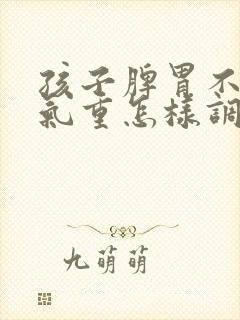 孩子脾胃不
氣重怎樣調
九萌萌